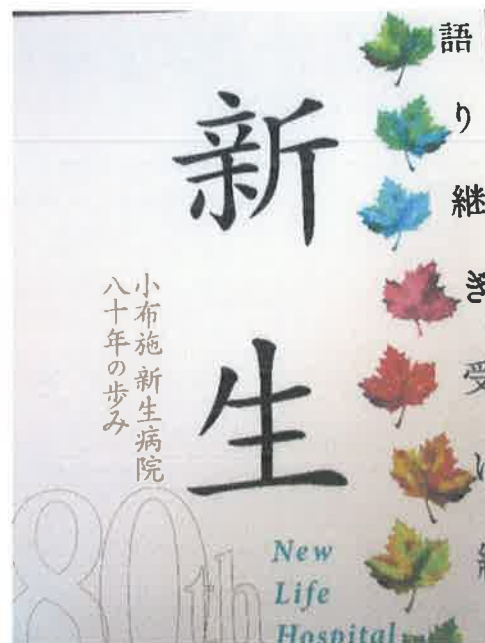 語り継ぎ受け
新生
小布施 新生病院
八十年の歩み
80th
New
Life
Hospital